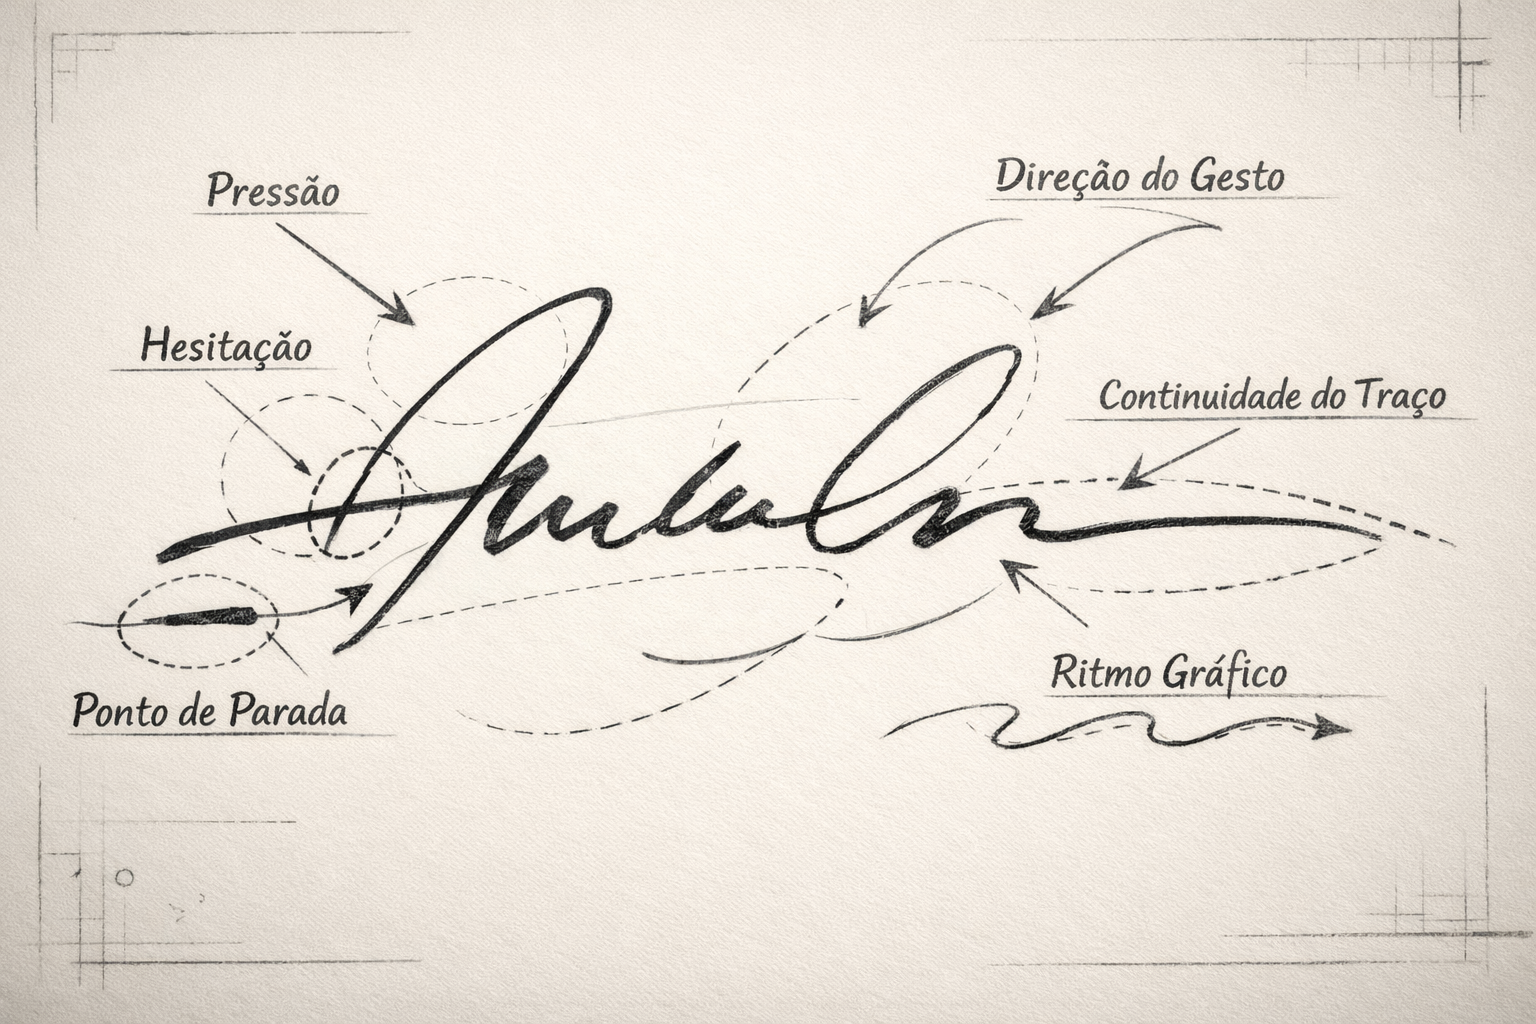 Pressão
Direção do Gesto
Hesitação
Continuidade do Traço
Ritmo Gráfico
Ponto de Parada